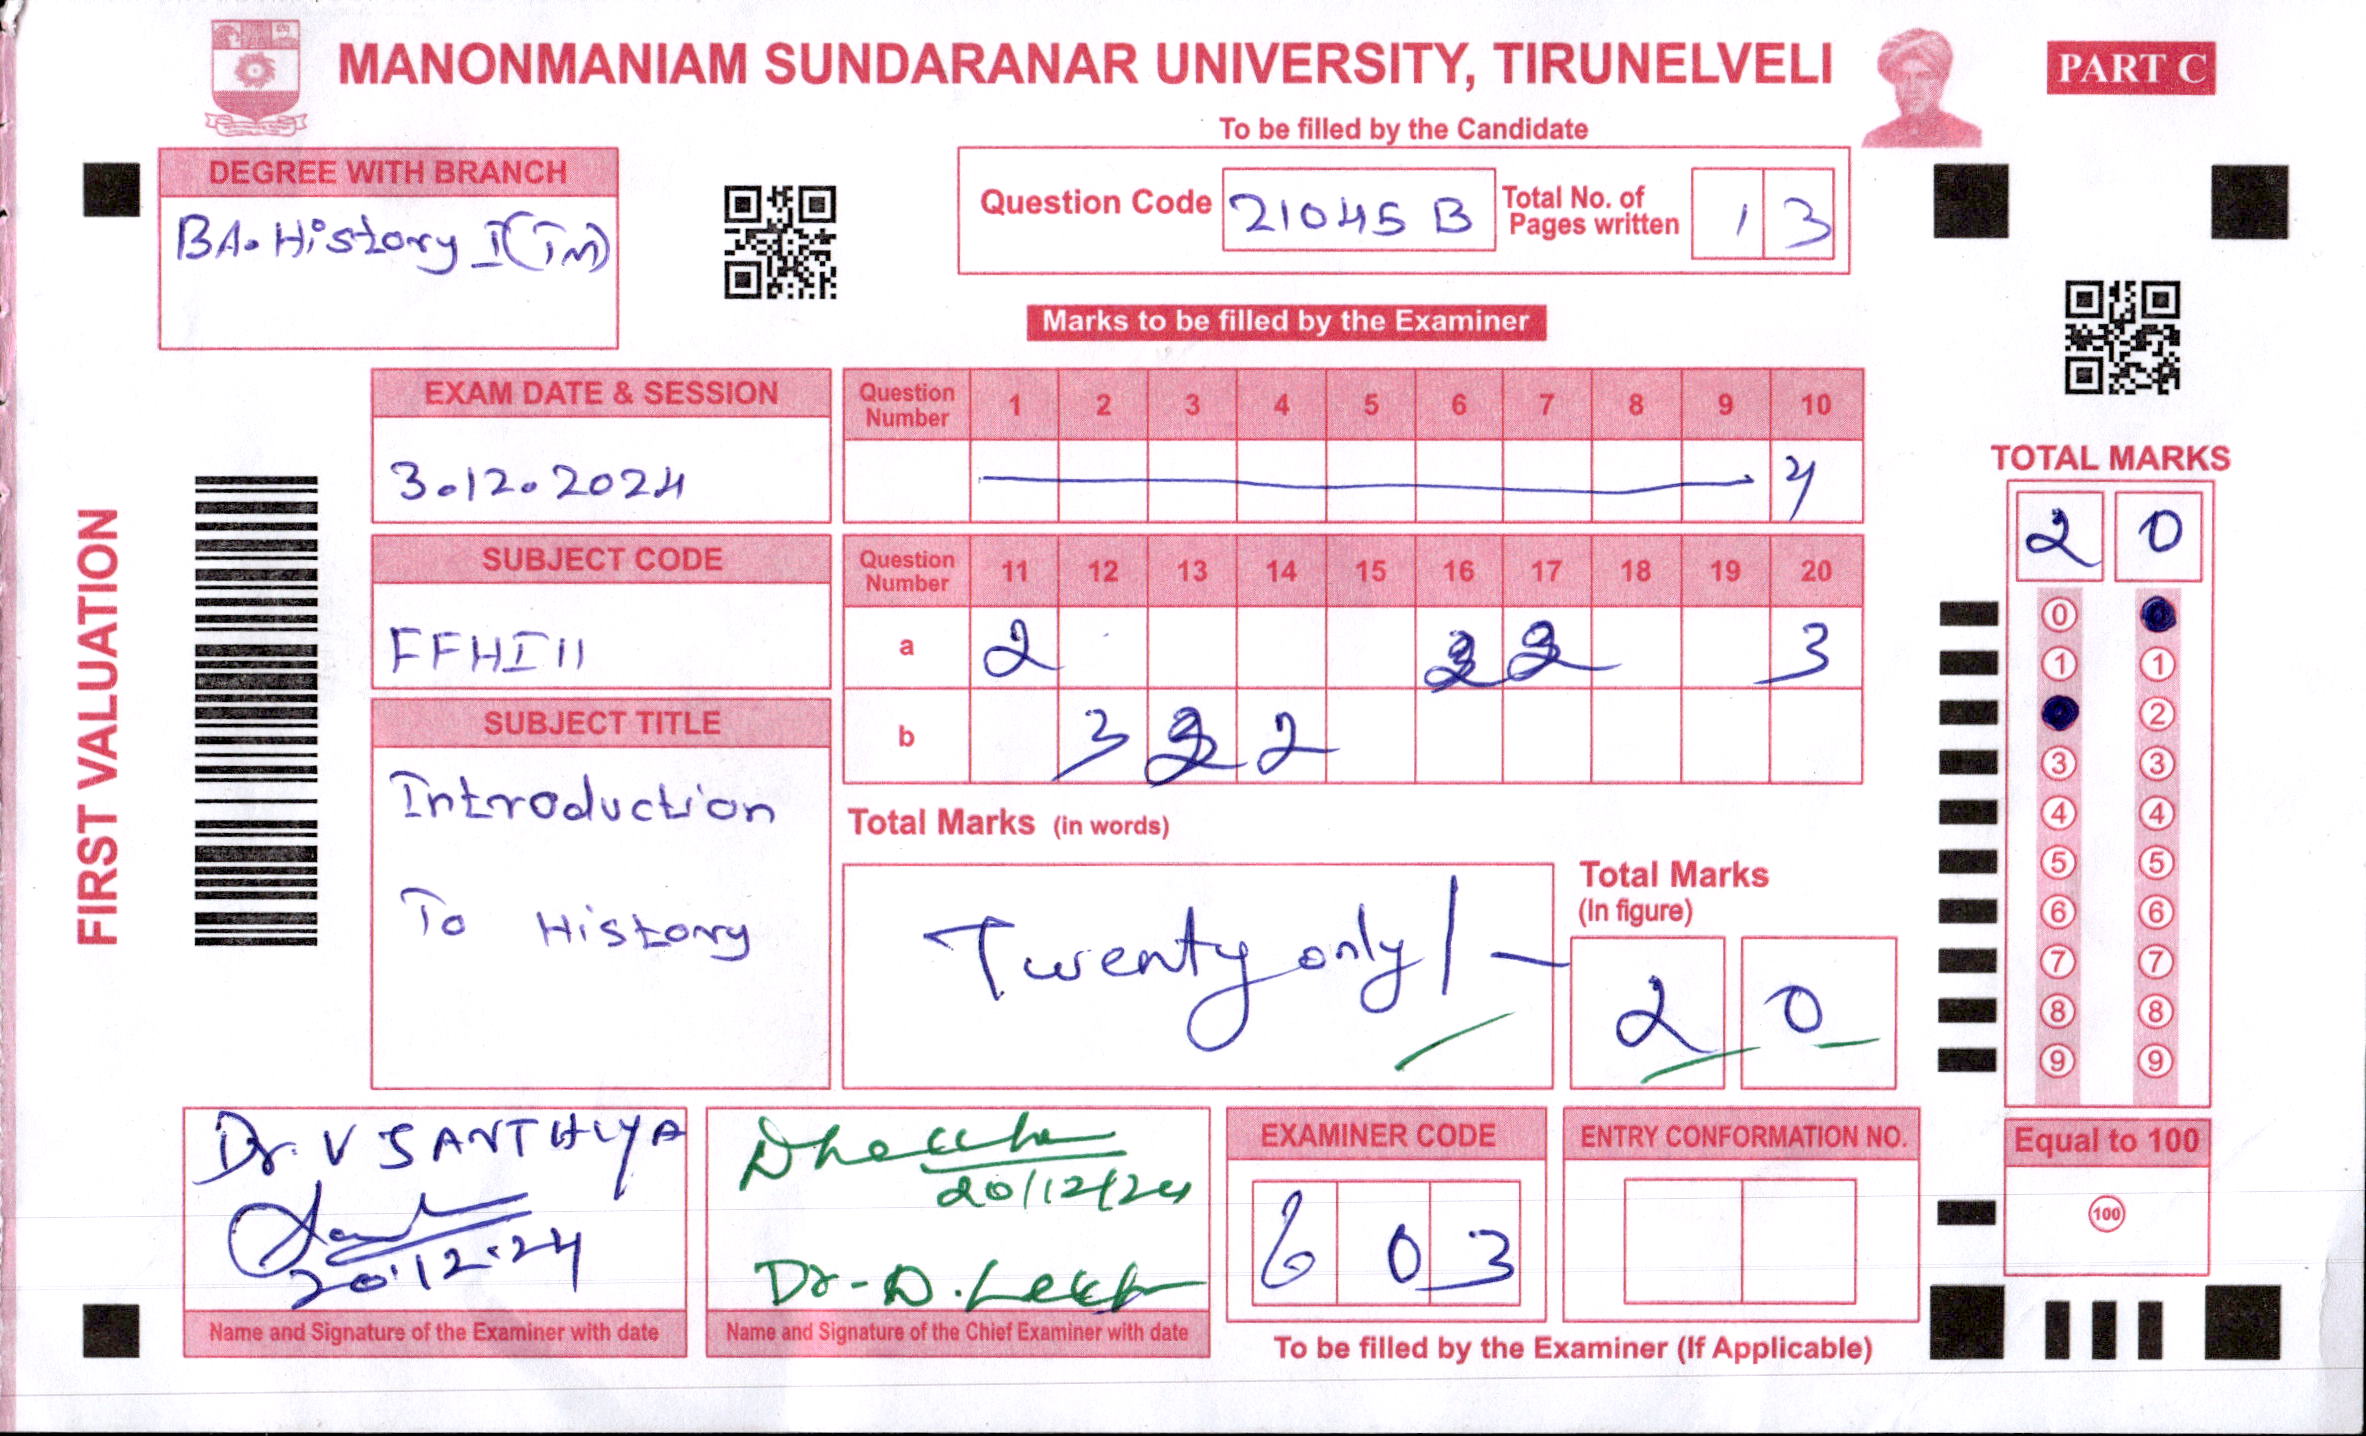 MANONMANIAM SUNDARANAR UNIVERSITY, TIRUNELVELI
PART C
To be filled by the Candidate
DEGREE WITH BRANCH
BA. History I (TM)
Question Code 21045 B
Total No. of Pages written 13
Marks to be filled by the Examiner
FIRST VALUATION
EXAM DATE & SESSION
3.12.2024
SUBJECT CODE
FFHI11
SUBJECT TITLE
Introduction
To History
Question Number 1 2 3 4 5 6 7 8 9 10
4
Question Number 11 12 13 14 15 16 17 18 19 20
a 2 2 2 3
b 3 2 2
Total Marks (in words)
Twenty only/-
Total Marks (In figure)
2 0
TOTAL MARKS
2 0
0
1 1
2
3 3
4 4
5 5
6 6
7 7
8 8
9 9
Equal to 100
100
Dr. V SANTHIYA
20.12.24
Name and Signature of the Examiner with date
20/12/24
Dr-D.Lekha
Name and Signature of the Chief Examiner with date
EXAMINER CODE
6 0 3
ENTRY CONFORMATION NO.
To be filled by the Examiner (If Applicable)